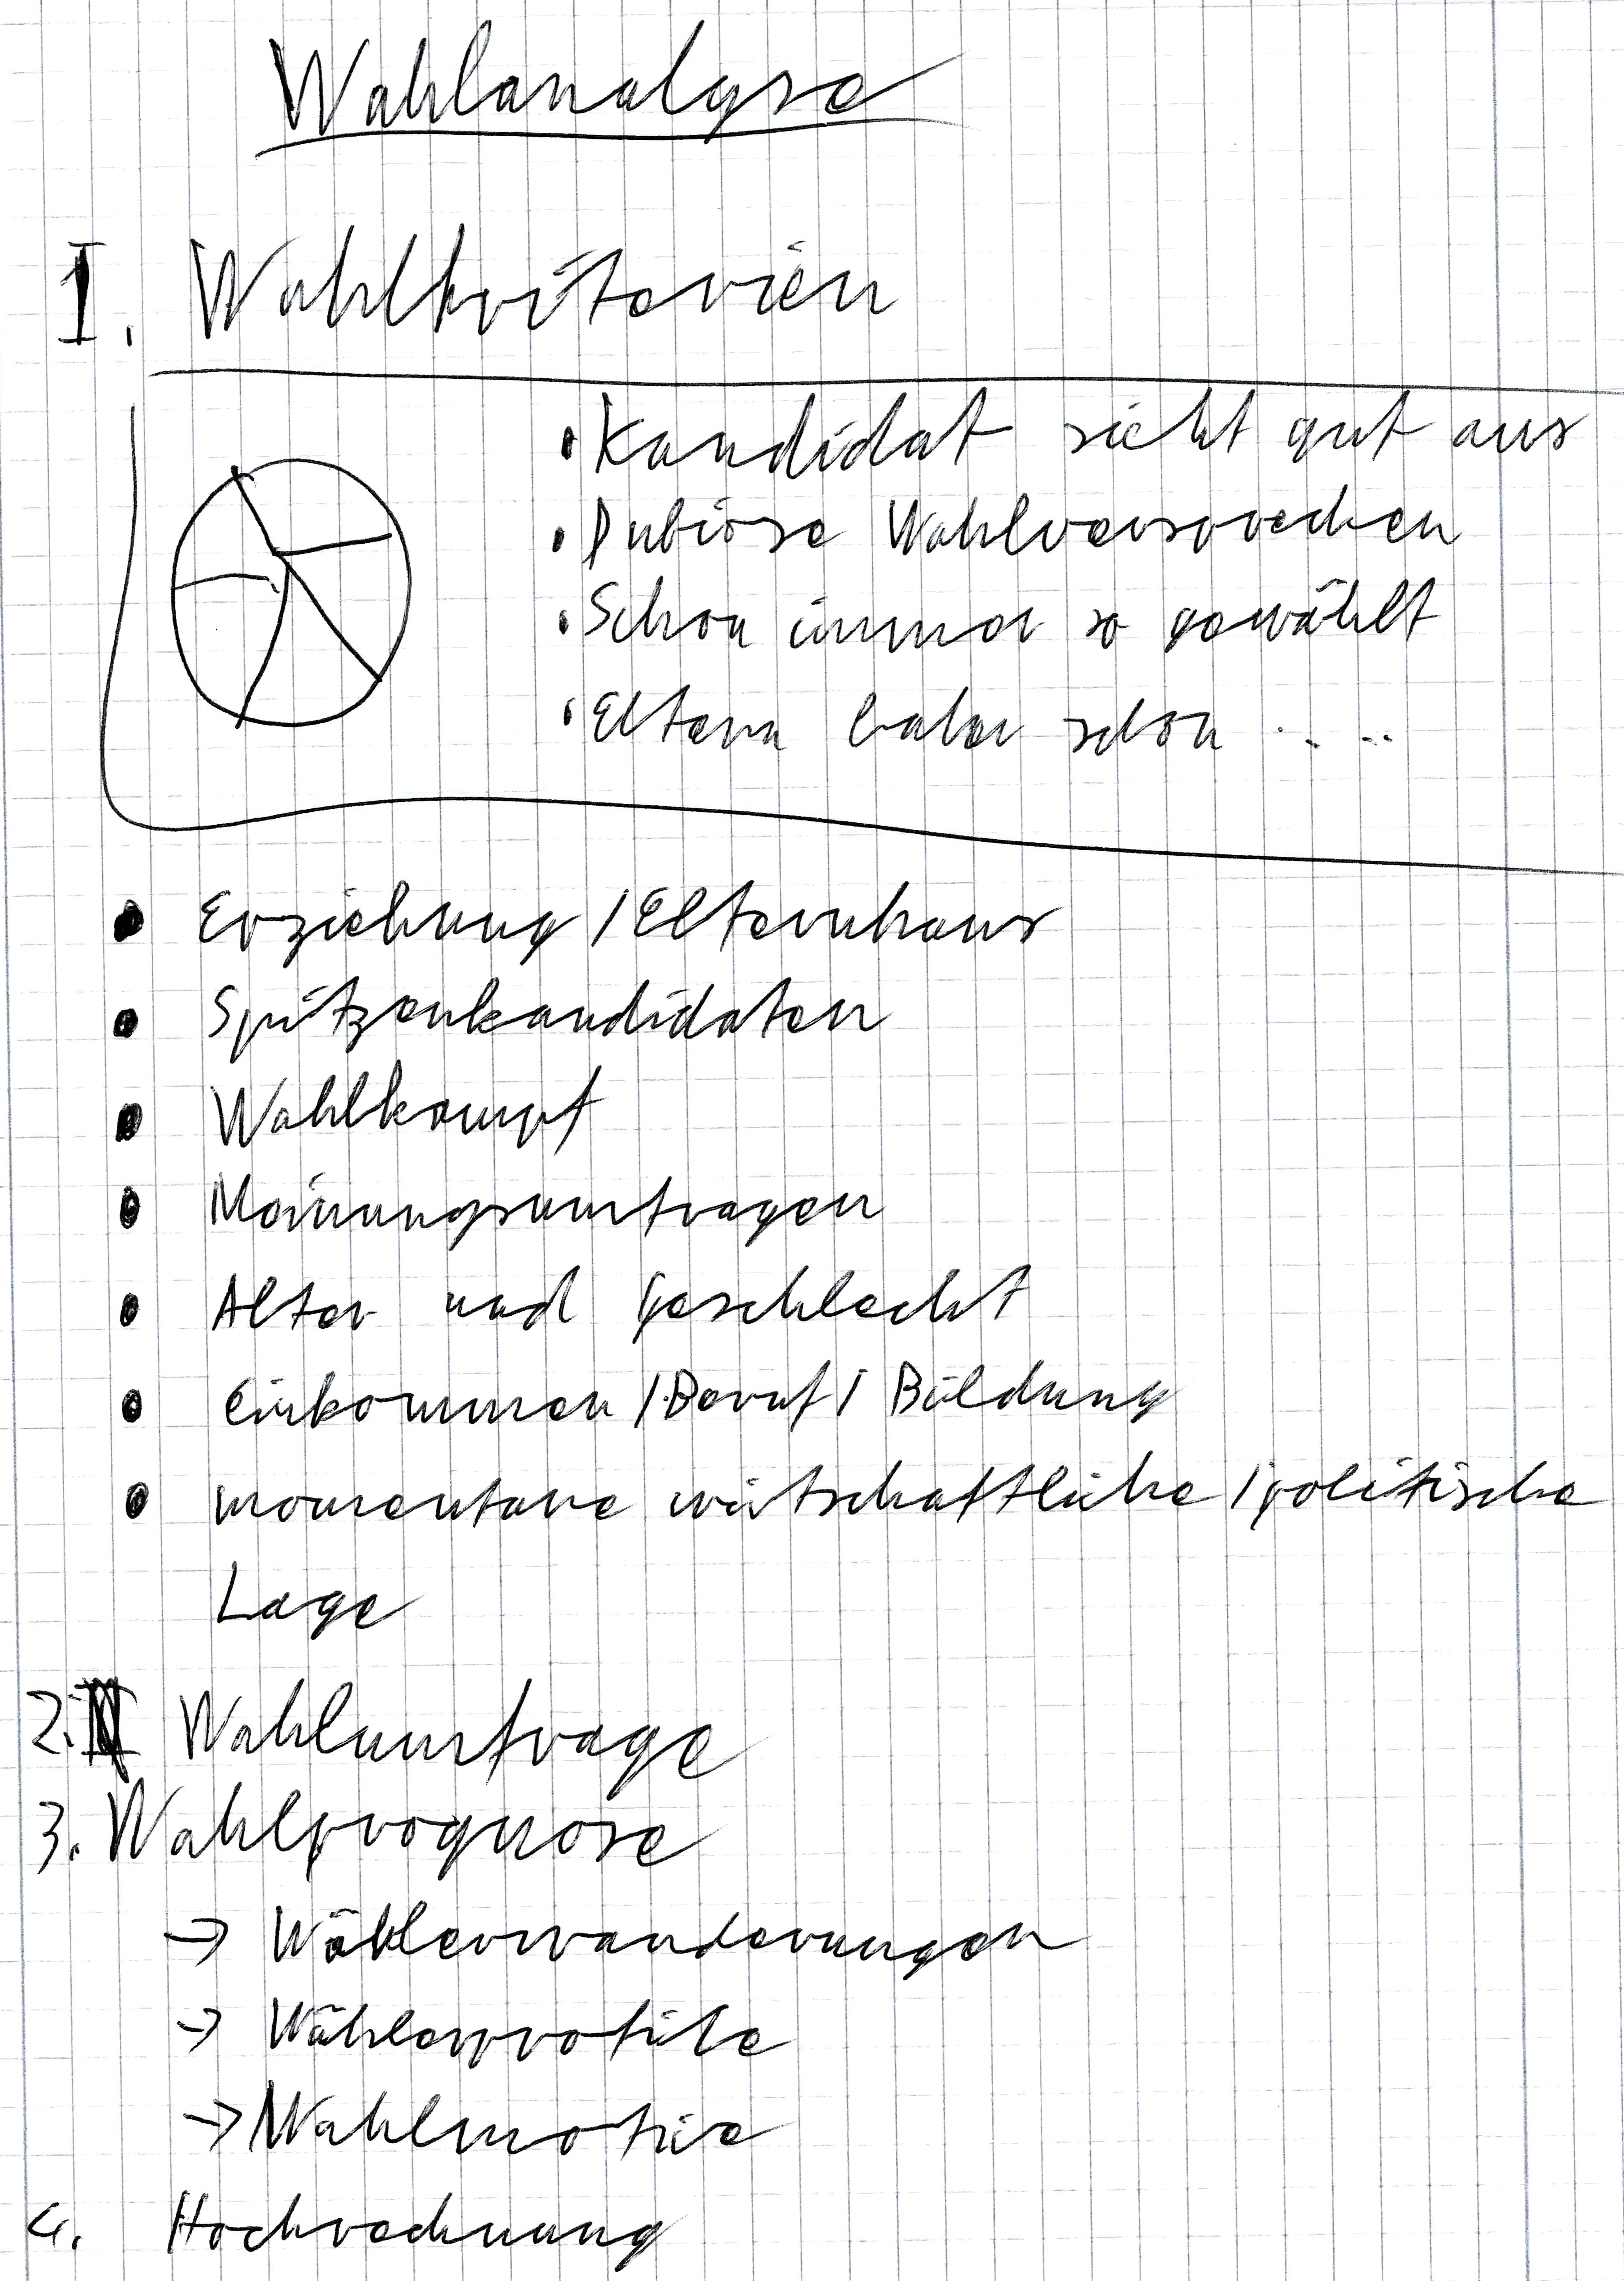 Wahlanalyse
1. Wahlkriterien
• Kandidat sieht gut aus
• Dubiose Wahlversprechen
• Schon immer so gewählt
• Eltern haben schon . . . .
• Erziehung / Elternhaus
• Spitzenkandidaten
• Wahlkampf
• Meinungsumfragen
• Alter und Geschlecht
• Einkommen / Beruf / Bildung
• momentane wirtschaftliche / politische
Lage
2. Wahlumfrage
3. Wahlprognose
→ Wählerwanderungen
→ Wählerprofile
→ Wahlmotive
4. Hochrechnung